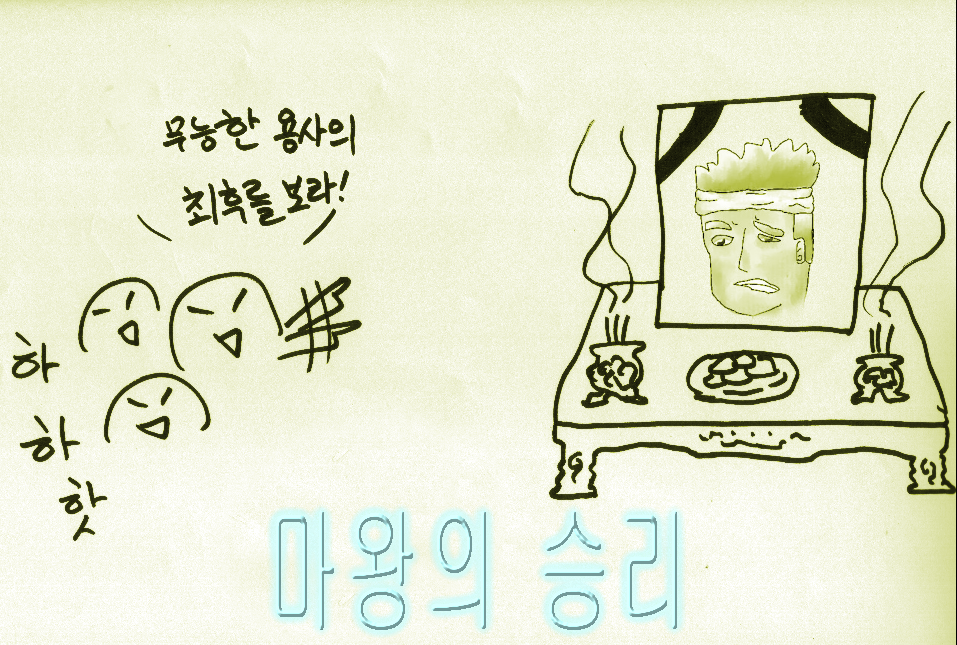 무능한 용사의
최후를 보라!
하
하
핫
마왕의 승리